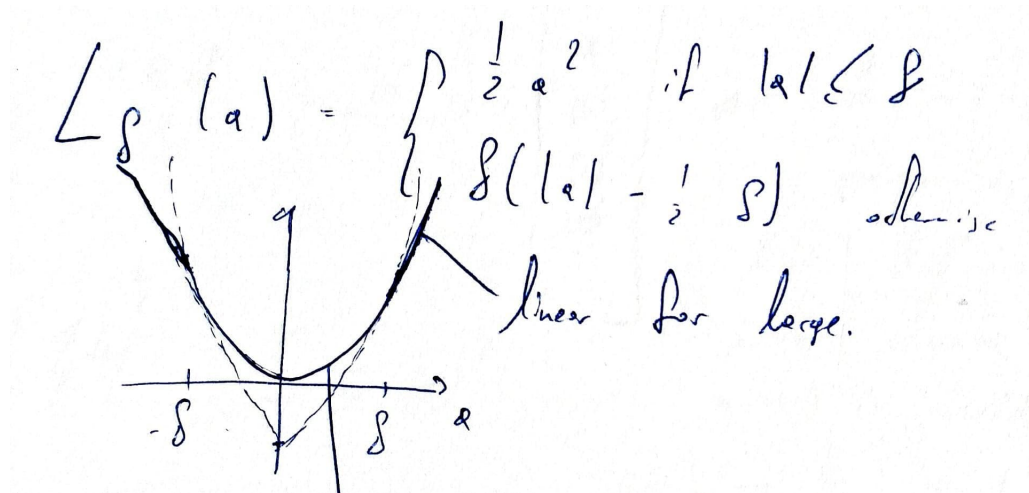 L_δ (a) = { ½ a² if |a| ≤ δ
δ(|a| - ½ δ) otherwise
linear for large.
-δ δ a